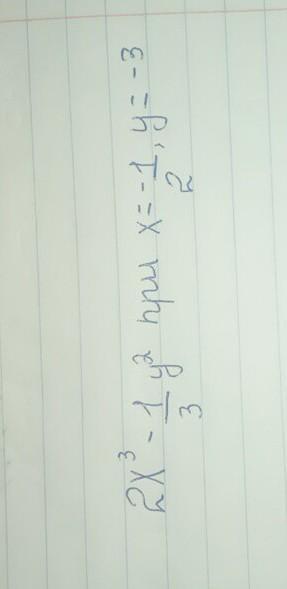 2x³ - 1/3 y² при x = -1/2, y = -3